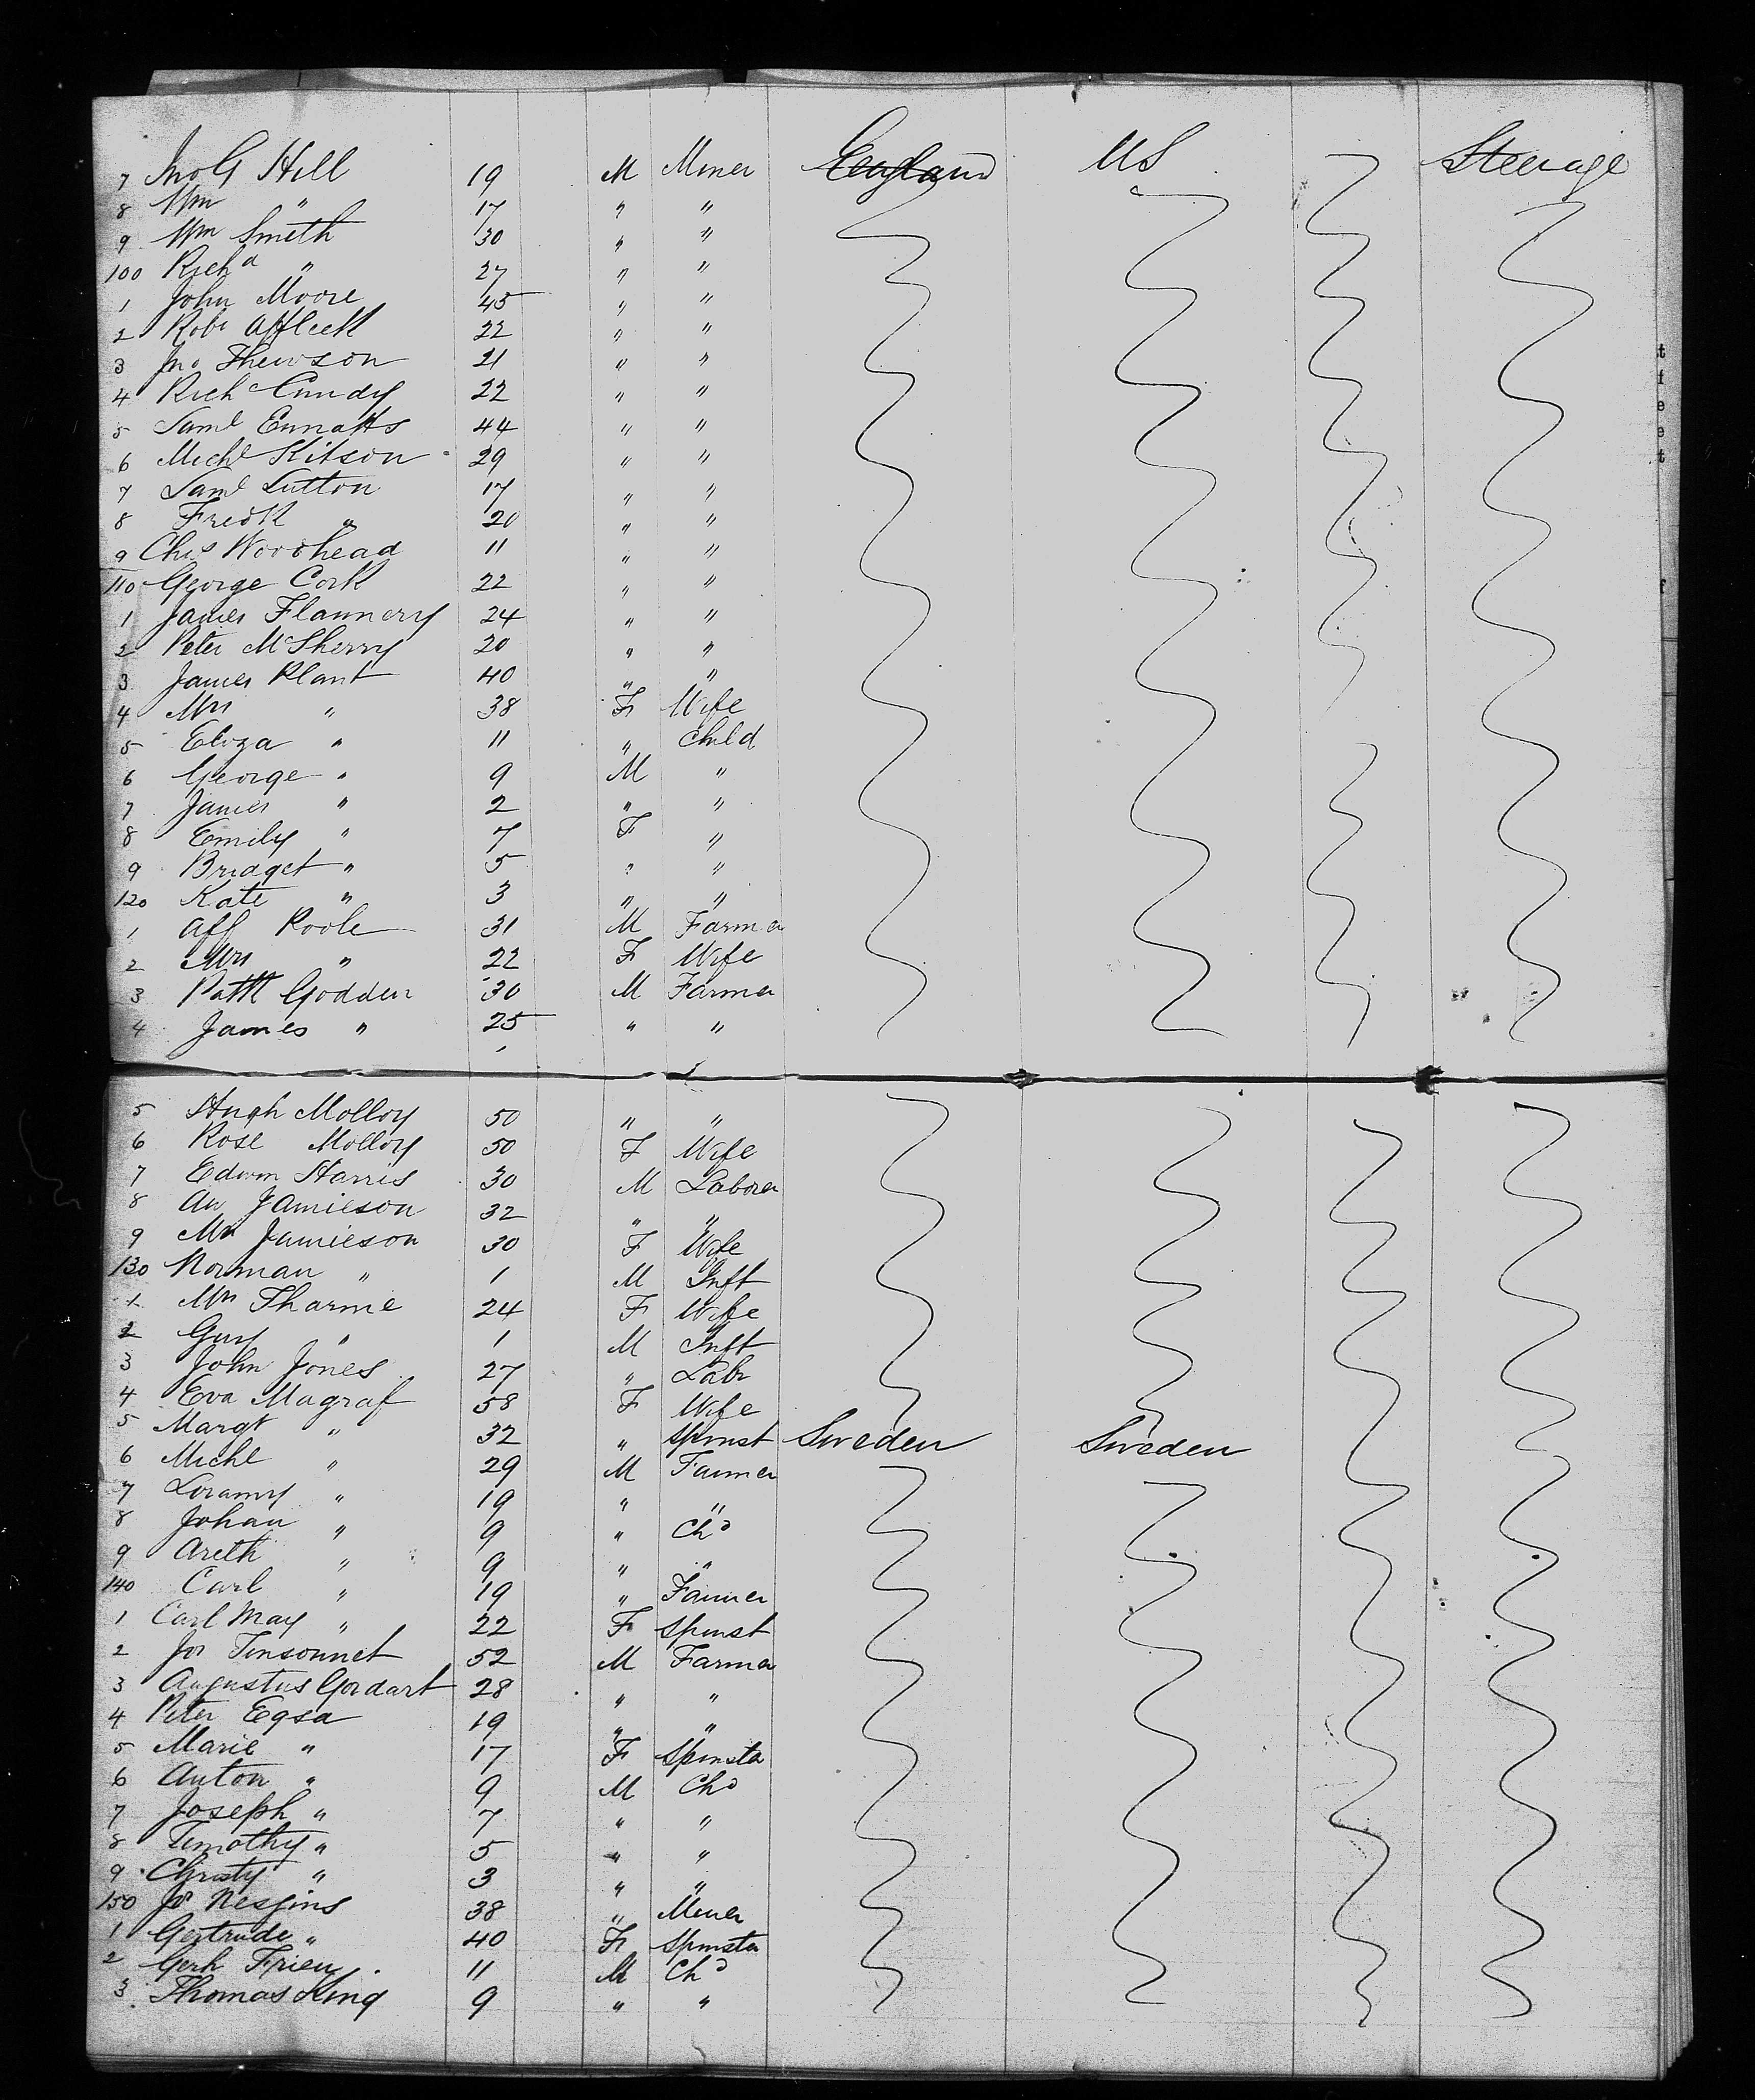 7 Jno G Hill 19 M Miner England US Steerage
8 Wm " 17 " "
9 Wm Smith 30 " "
100 Richd " 27 " "
1 John Moore 45 " "
2 Robt Affleck 22 " "
3 Jno Thewson 21 " "
4 Richd Cundy 22 " "
5 Saml Ennatts 44 " "
6 Michl Kitson 29 " "
7 Saml Lutton 17 " "
8 Fredk " 20 " "
9 Chs Woodhead 11 " "
110 George Cork 22 " "
1 James Flannery 24 " "
2 Peter McSherry 20 " "
3 James Plant 40 " "
4 Mrs " 38 F Wife
5 Eliza " 11 " Child
6 George " 9 M "
7 James " 2 " "
8 Emily " 7 F "
9 Bridget " 5 " "
120 Kate " 3 " "
1 Alf Poole 31 M Farmer
2 Mrs " 22 F Wife
3 Patk Godden 30 M Farmer
4 James " 25 " "
5 Hugh Molloy 50 " "
6 Rose Molloy 50 F Wife
7 Edwin Harris 30 M Laborer
8 Aw Jamieson 32 " "
9 Mrs Jamieson 30 F Wife
130 Norman " 1 M Inft
1 Mrs Tharme 24 F Wife
2 Guy " 1 M Inft
3 John Jones 27 " Labr
4 Eva Magraf 58 F Wife
5 Margt " 32 " Spinst Sweden Sweden
6 Michl " 29 M Farmer
7 " 19 " "
8 Johan " 9 " Chd
9 Areth " 9 " "
140 Carl " 19 " Farmer
1 Carl May " 22 F Spinst
2 Jos Tinsonnet 52 M Farmer
3 Augustus Godart 28 " "
4 Peter Egsa 19 " "
5 Marie " 17 F Spinster
6 Anton " 9 M Chd
7 Joseph " 7 " "
8 Timothy " 5 " "
9 Christy " 3 " "
150 Jos Nesgins 38 " Miner
1 Gertrude " 40 F Spinster
2 Gerh Frieu 11 M Chd
3 Thomas King 9 " "